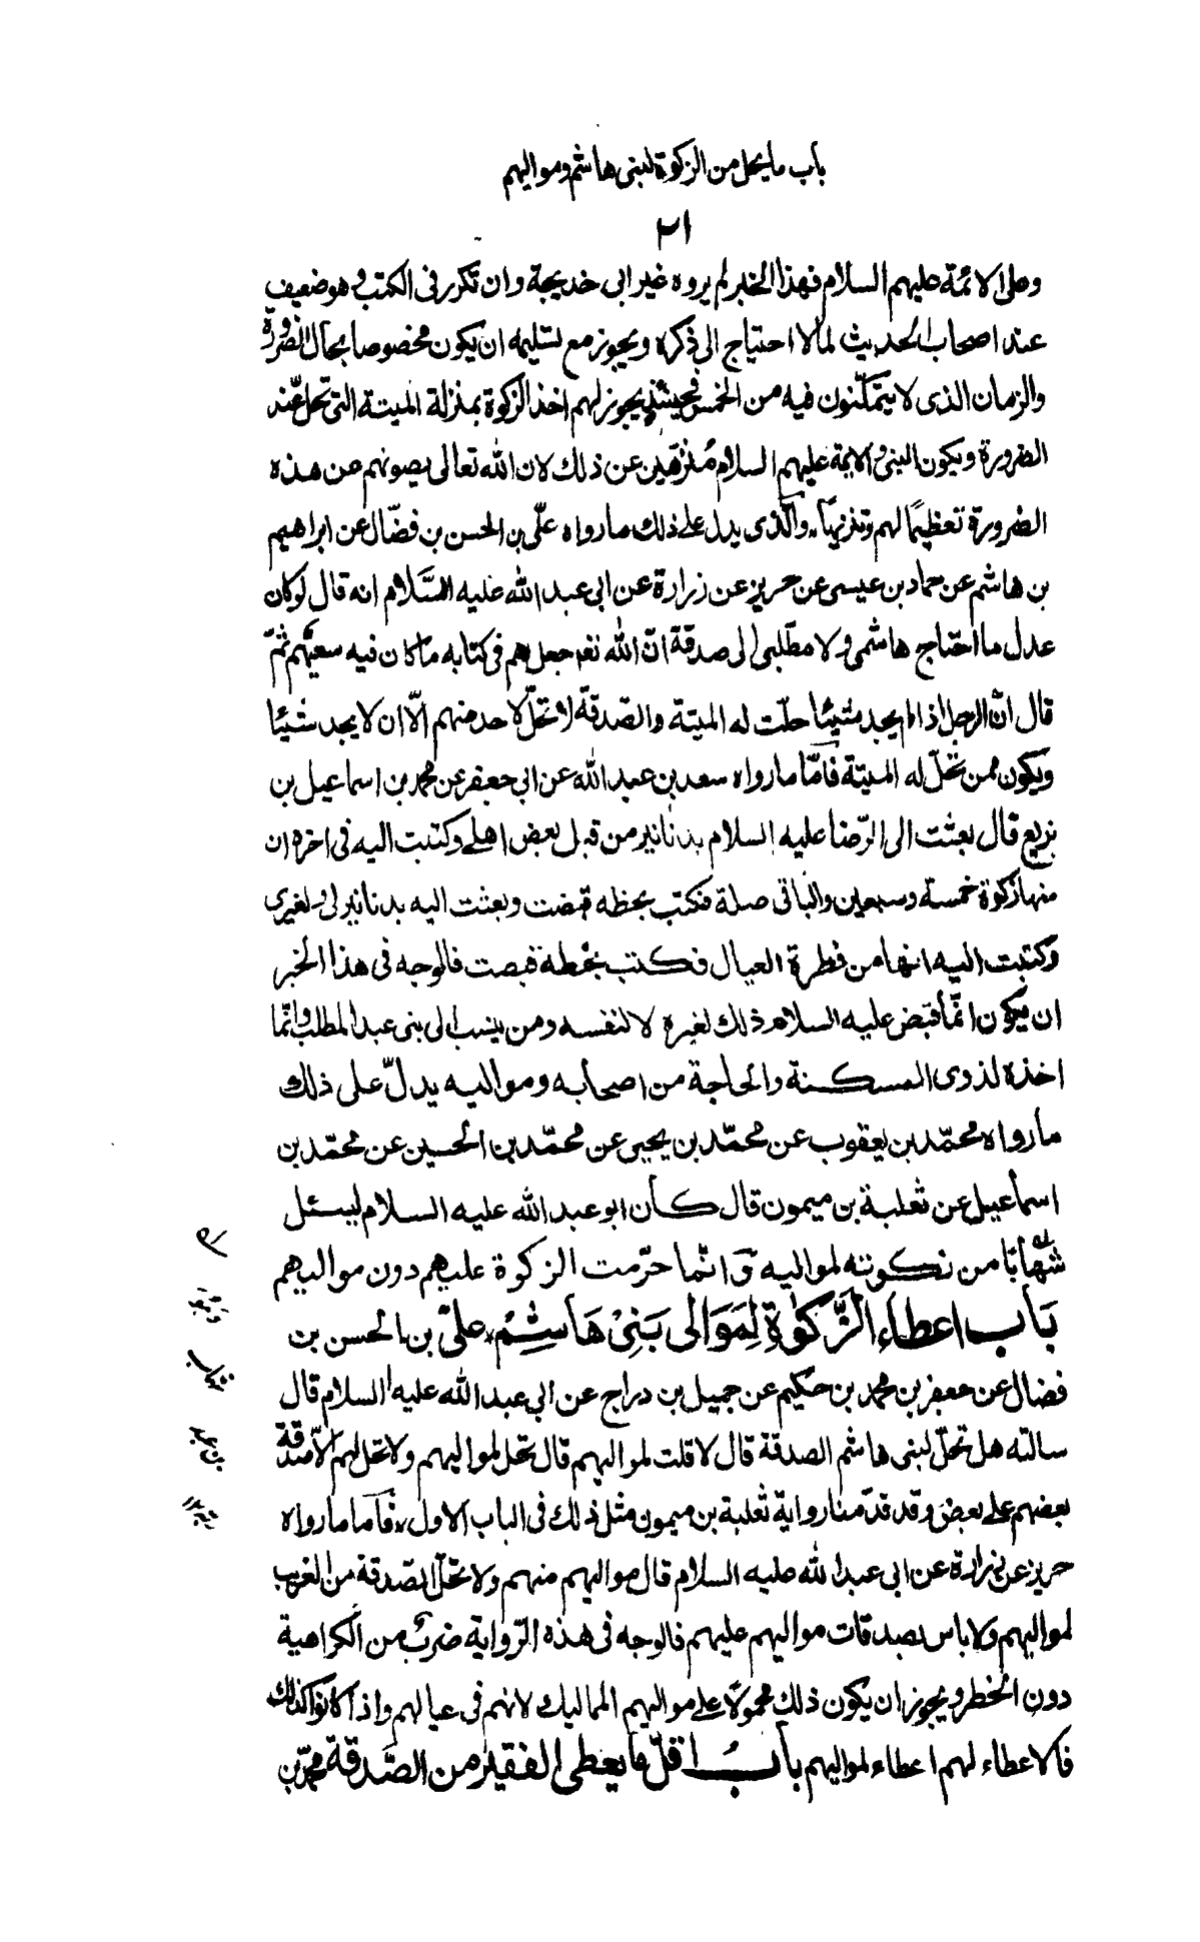 باب ما يحل من الزكوة لبنى هاشم ومواليهم
٢١
وعلى الائمة عليهم السلام فهذا الخبر لم يروه غير ابى خديجة وان تكرر فى الكتب وهو ضعيف
عند اصحاب الحديث لما لا احتياج الى ذكره ويجوز مع تسليمه ان يكون مخصوصا بحال الضرورة
والزمان الذى لا يتمكنون فيه من الخمس فحينئذ يجوز لهم اخذ الزكوة بمنزلة الميتة التى تحل عند
الضرورة ويكون النبى والائمة عليهم السلام منزهين عن ذلك لان الله تعالى يصونهم عن هذه
الضرورة تعظيمًا لهم وتنزيهًا والذى يدل على ذلك ما رواه علّى بن الحسن بن فضّال عن ابراهيم
بن هاشم عن حماد بن عيسى عن حريز عن زرارة عن ابى عبد الله عليه السَّلام انه قال لو كان
عدل ما احتاج هاشمى ولا مطّلبى الى صدقة انّ الله تعه جعل لهم فى كتابه ما كان فيه سعتهم ثمّ
قال انّ الرجل اذا لم يجد شيئًا حلّت له الميتة والصّدقة لا تحلّ لاحد منهم الّا ان لا يجد شيئًا
ويكون ممن تحلّ له الميتة فامّا ما رواه سعد بن عبد الله عن ابى جعفر عن محمد بن اسماعيل بن
بزيع قال بعثت الى الرّضا عليه السلام بدنانير من قبل بعض اهلى وكتبت اليه فى اخره ان
منها زكوة خمسة وسبعين والباقى صلة فكتب بخطه قبضت وبعثت اليه بدنانير لى ولغيرى
وكتبت اليه انها من فطرة العيال فكتب بخطه قبضت فالوجه فى هذا الخبر
ان يكون انّما قبض عليه السلام ذلك لغيره لا لنفسه ومن ينسب الى بنى عبد المطلب وانّما
اخذه لذوى المسكنة والحاجة من اصحابه ومواليه يدلّ على ذلك
ما رواه محمّد بن يعقوب عن محمّد بن يحيى عن محمّد بن الحسين عن محمّد بن
اسماعيل عن ثعلبة بن ميمون قال كان ابو عبد الله عليه السلام يسئل
شهابًا من زكوته لمواليه وانّما حرّمت الزكوة عليهم دون مواليهم
بَاب اعطاء الزَّكوٰة لِمَوَالى بَنِىْ هَاشِمْ علىّ بن الحسن بن
فضال عن جعفر بن محمد بن حكيم عن جميل بن دراج عن ابى عبد الله عليه السلام قال
سالته هل تحلّ لبنى هاشم الصدقة قال لا قلت لمواليهم قال تحل لمواليهم ولا تحل لهم الّا صدقة
بعضهم على بعض وقد قدّمنا رواية ثعلبة بن ميمون مثل ذلك فى الباب الاول فامّا ما رواه
حريز عن زرارة عن ابى عبد الله عليه السلام قال مواليهم منهم ولا تحلّ الصّدقة من الغريب
لمواليهم ولا باس بصدقات مواليهم عليهم فالوجه فى هذه الرّواية ضرب من الكراهية
دون الحظر ويجوز ان يكون ذلك محمولًا على مواليهم المماليك لانهم فى عيالهم واذا كانوا كذلك
فالاعطاء لهم اعطاء لمواليهم بابُ اقلّ ما يعطى الفقير من الصَّدقة محمّد بن